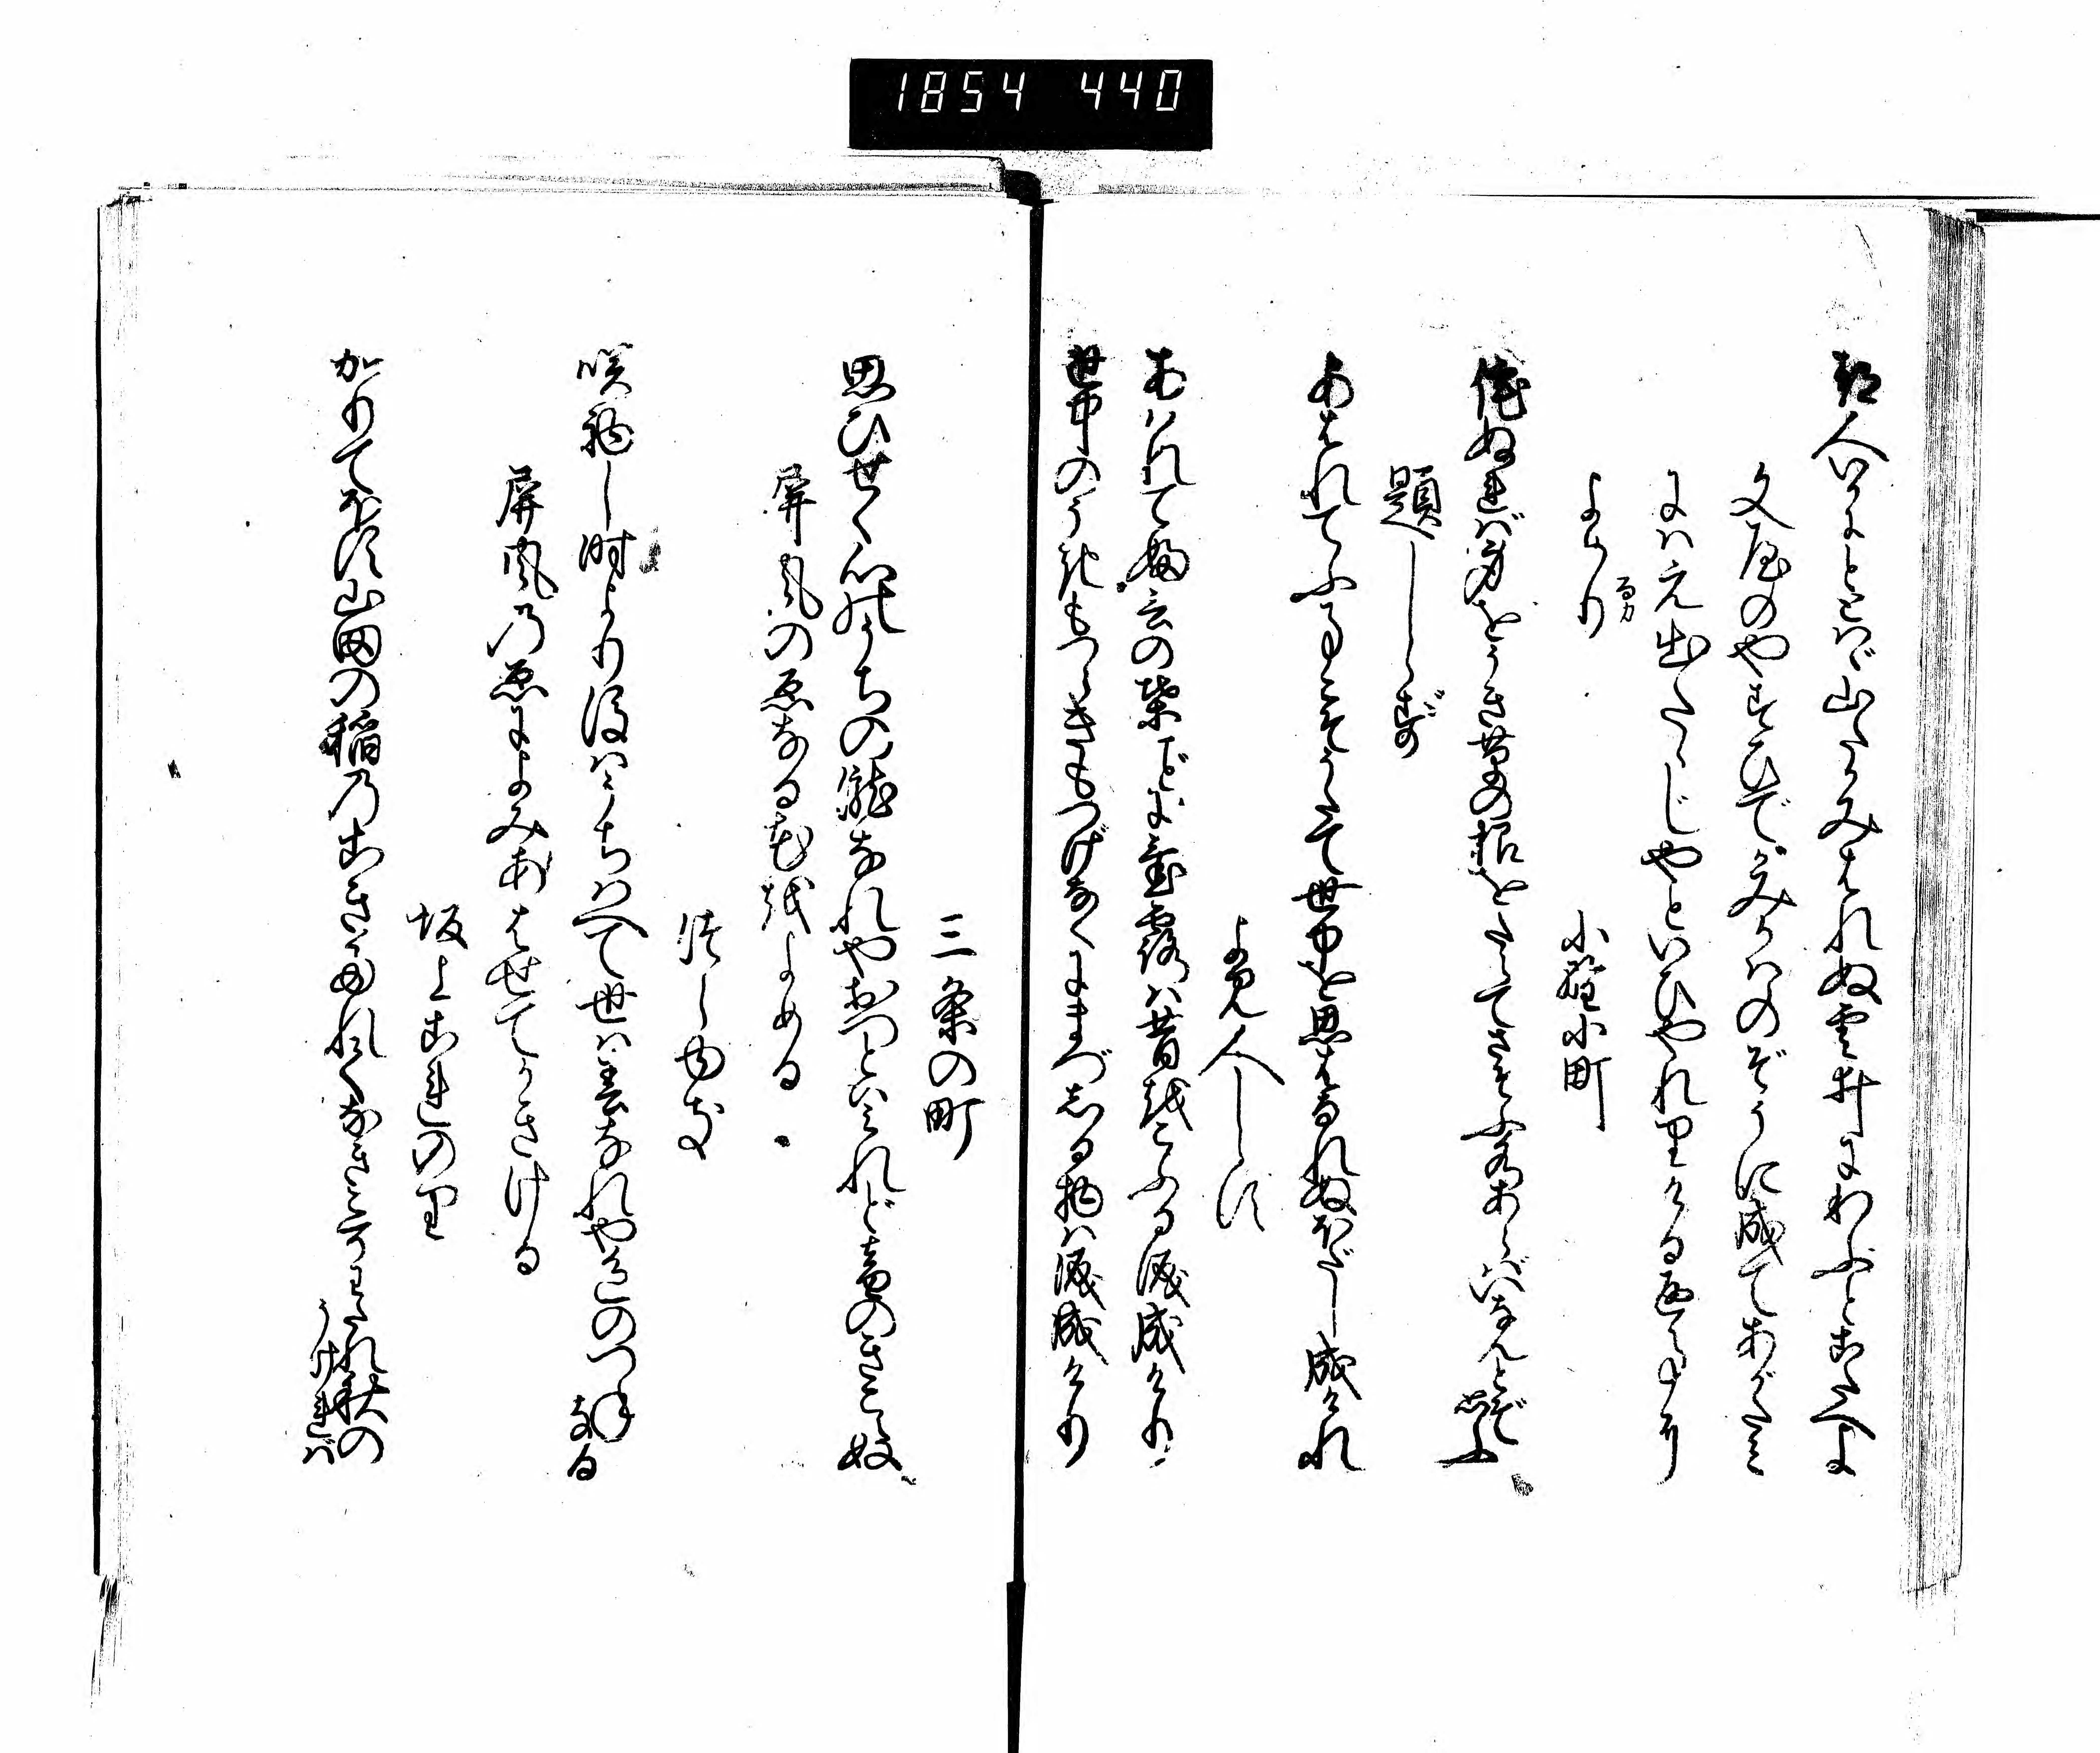 1854 440
都人いかにとゝはゞ山たかみはれぬ雲井にわぶとこたへよ
文屋のやすひでがみかはのぞうに成てあがたみ
にはえ出たゝじやといひやれりける返事に
よめり
るカ
小野小町
侘ぬればみをうき草の根をたえてさそふ水あらばいなんとぞ思ふ
題しらず
あはれてふことこそうたて世中を思はなれぬほだし成けれ
よみ人しらず
あはれてふ言の葉ごとに置露は昔をこふる涙成けり
世中のうきもつらきもつげなくにまづしる物は涙成けり
三条の町
思ひせく心のうちの瀧なれやおつとはみれど音のきこえぬ
屏風の絵なる花をよめる
つらゆき
咲初し時より後はうちはへて世は春なれや色のつねなる
屏風乃絵によみあはせてかきける
坂上これのり
かりてほす山田の稲乃こきたれてなきこそわたれ秋の
うければ